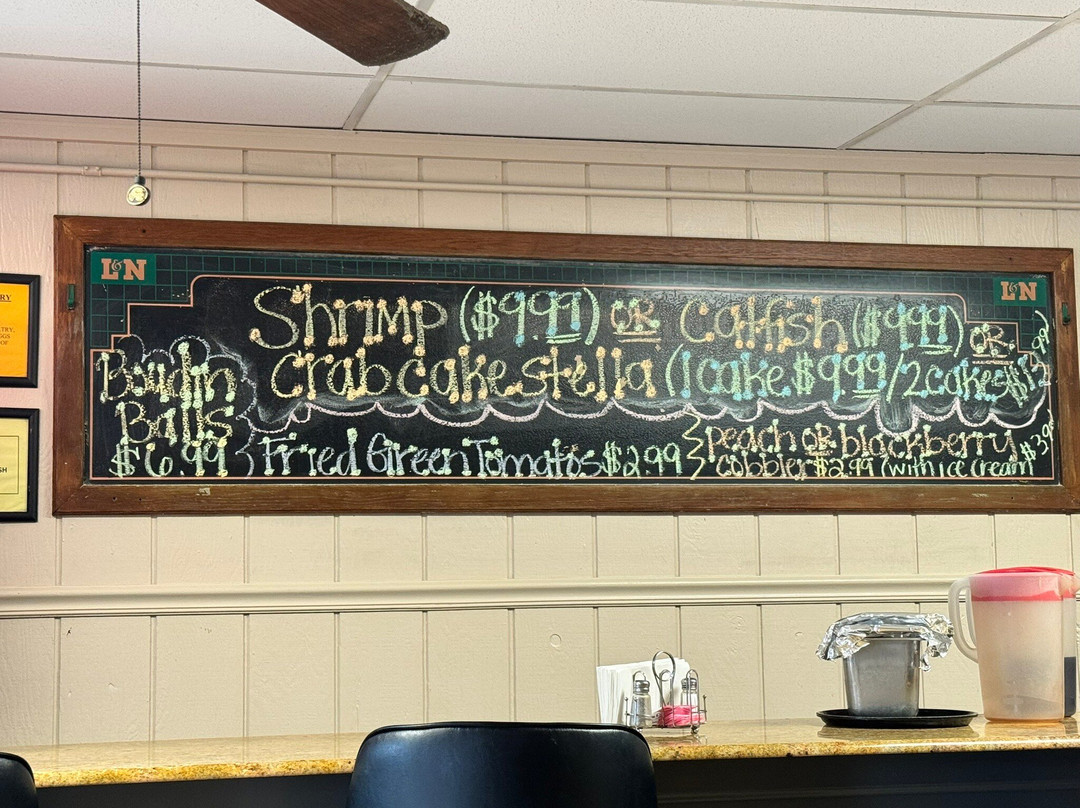 L&N
L&N
Shrimp ($9.99) OR Catfish ($9.99) OR
crabcakestella (1 cake $9.99/2 cakes $13.99)
Boudin
Balls
$6.99
Fried Green Tomatos $2.99
peach OR blackberry
cobbler $2.99 (with ice cream $3.99
RY
TRY,
GGS
OF
SH